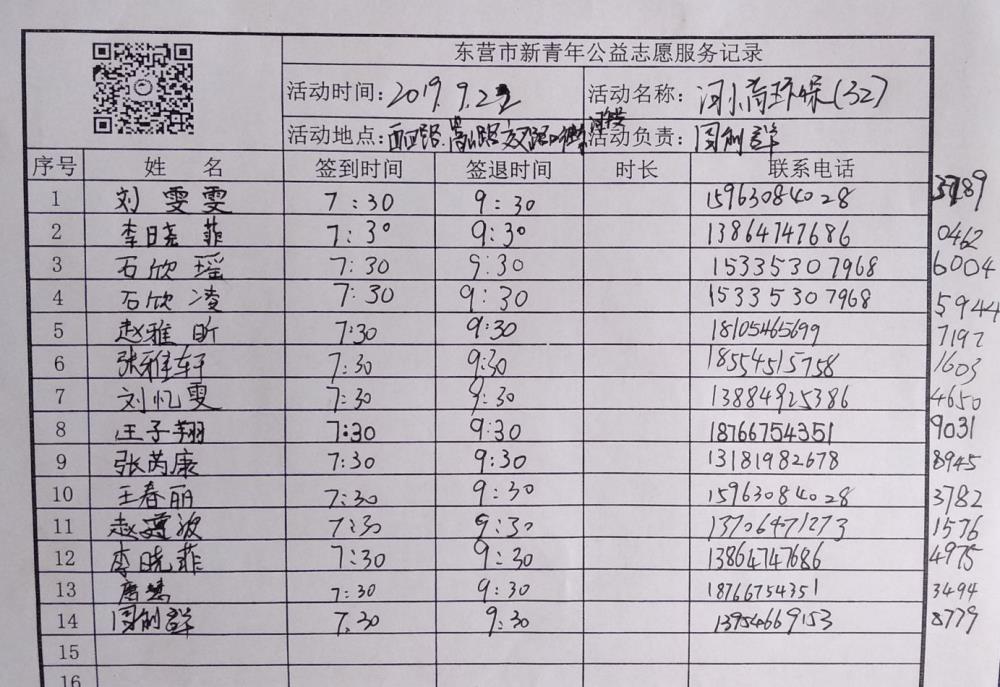 东营市新青年公益志愿服务记录
活动时间: 2019.9.22 活动名称: 河小青环保(32)
活动地点: 活动负责: 周利群
序号 姓 名 签到时间 签退时间 时长 联系电话
1 刘雯雯 7:30 9:30 15963084028 3789
2 李晓菲 7:30 9:30 13864747686 0462
3 石欣瑶 7:30 9:30 15335307968 6004
4 石欣凌 7:30 9:30 15335307968 5944
5 赵雅昕 7:30 9:30 18105465699 7192
6 张雅轩 7:30 9:30 18554515758 1603
7 刘忆雯 7:30 9:30 13884925386 4650
8 汪子翔 7:30 9:30 18766754351 9031
9 张芮康 7:30 9:30 13181982678 8945
10 王春丽 7:30 9:30 15963084028 3782
11 赵 波 7:30 9:30 13706471273 1576
12 李晓菲 7:30 9:30 13864747686 4975
13 唐慧 7:30 9:30 18766754351 3494
14 周利群 7.30 9:30 13954669153 8779
15
16